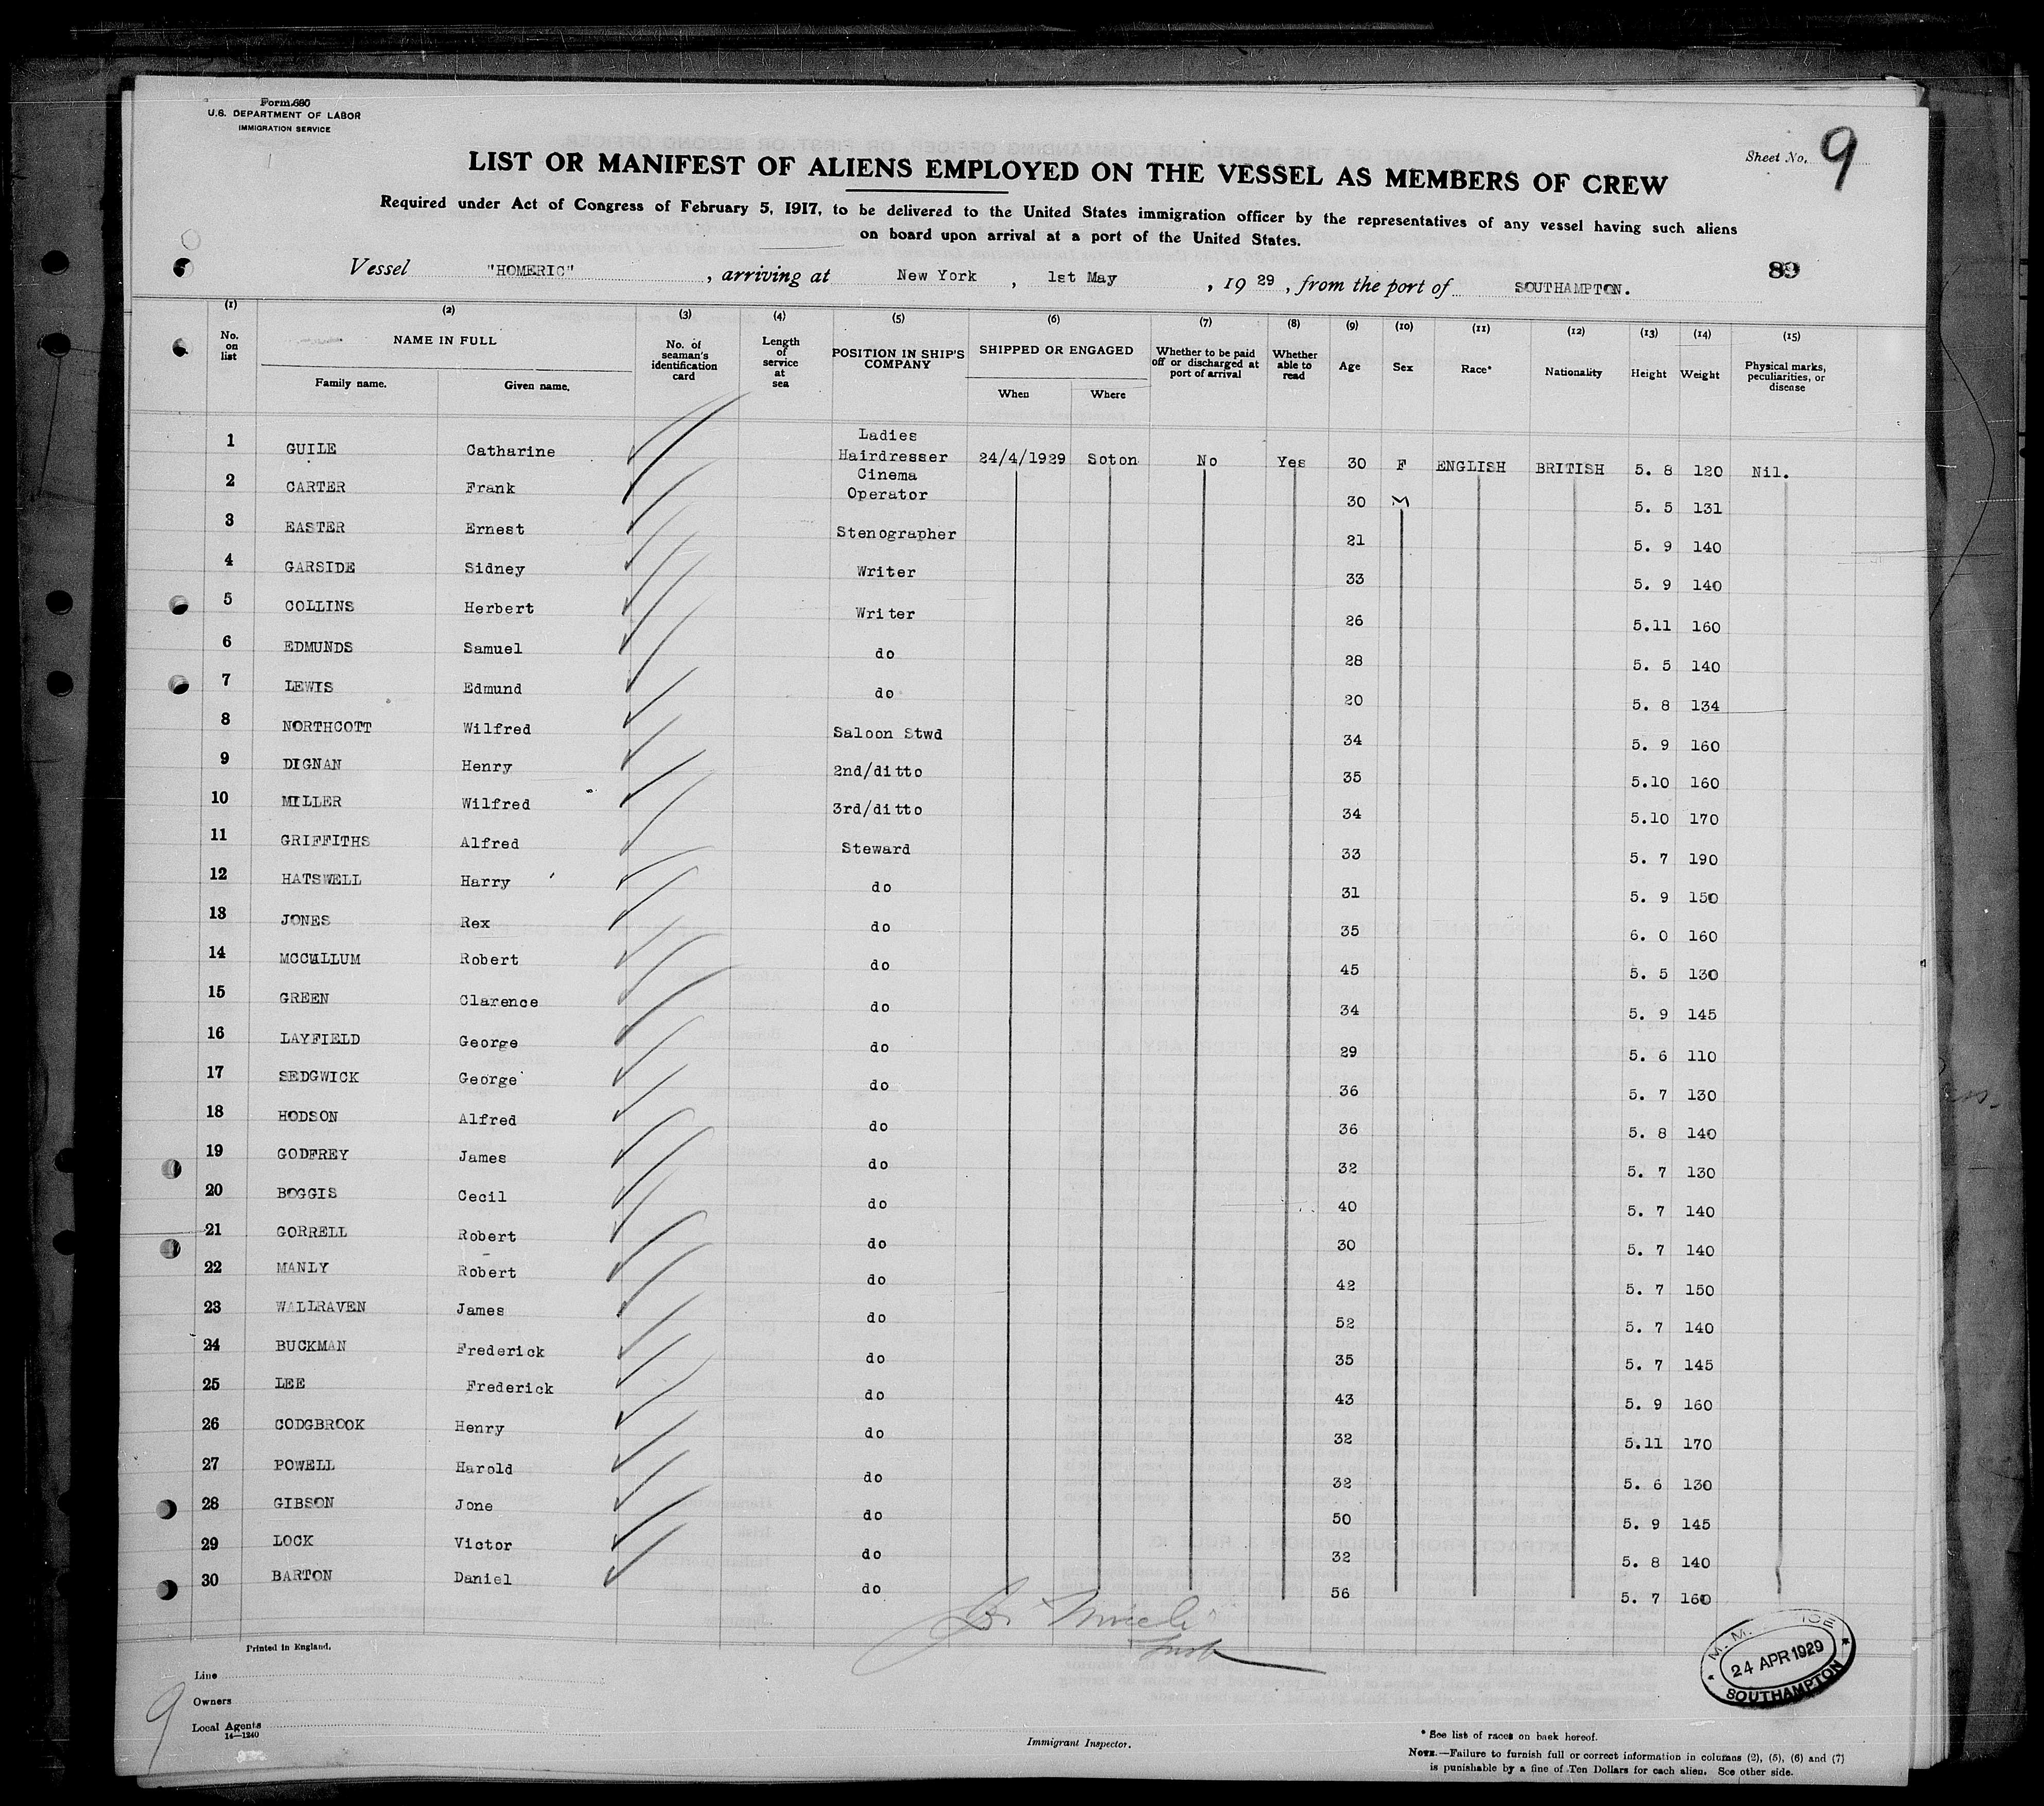 Form 680
U.S. DEPARTMENT OF LABOR
IMMIGRATION SERVICE
Sheet No. 9
LIST OR MANIFEST OF ALIENS EMPLOYED ON THE VESSEL AS MEMBERS OF CREW
Required under Act of Congress of February 5, 1917, to be delivered to the United States immigration officer by the representatives of any vessel having such aliens
on board upon arrival at a port of the United States.
89
Vessel "HOMERIC", arriving at New York, 1st May, 1929, from the port of SOUTHAMPTON.
(1) (2) (3) (4) (5) (6) (7) (8) (9) (10) (11) (12) (13) (14) (15)
No. on list NAME IN FULL Family name. Given name. No. of seaman's identification card Length of service at sea POSITION IN SHIP'S COMPANY SHIPPED OR ENGAGED When Where Whether to be paid off or discharged at port of arrival Whether able to read Age Sex Race* Nationality Height Weight Physical marks, peculiarities, or disease
1 GUILE Catharine Ladies Hairdresser 24/4/1929 Soton No Yes 30 F ENGLISH BRITISH 5. 8 120 Nil.
2 CARTER Frank Cinema Operator 30 M 5. 5 131
3 EASTER Ernest Stenographer 21 5. 9 140
4 GARSIDE Sidney Writer 33 5. 9 140
5 COLLINS Herbert Writer 26 5.11 160
6 EDMUNDS Samuel do 28 5. 5 140
7 LEWIS Edmund do 20 5. 8 134
8 NORTHCOTT Wilfred Saloon Stwd 34 5. 9 160
9 DIGNAN Henry 2nd/ditto 35 5.10 160
10 MILLER Wilfred 3rd/ditto 34 5.10 170
11 GRIFFITHS Alfred Steward 33 5. 7 190
12 HATSWELL Harry do 31 5. 9 150
13 JONES Rex do 35 6. 0 160
14 MCCALLUM Robert do 45 5. 5 130
15 GREEN Clarence do 34 5. 9 145
16 LAYFIELD George do 29 5. 6 110
17 SEDGWICK George do 36 5. 7 130
18 HODSON Alfred do 36 5. 8 140
19 GODFREY James do 32 5. 7 130
20 BOGGIS Cecil do 40 5. 7 140
21 GORRELL Robert do 30 5. 7 140
22 MANLY Robert do 42 5. 7 150
23 WALLRAVEN James do 52 5. 7 140
24 BUCKMAN Frederick do 35 5. 7 145
25 LEE Frederick do 43 5. 9 160
26 CODGBROOK Henry do 32 5.11 170
27 POWELL Harold do 32 5. 6 130
28 GIBSON Jone do 50 5. 9 145
29 LOCK Victor do 32 5. 8 140
30 BARTON Daniel do 56 5. 7 160
Printed in England.
Line
Owners
Local Agents
14—1240
9
Immigrant Inspector.
M. M.
24 APR 1929
SOUTHAMPTON
* See list of races on back hereof.
NOTE.—Failure to furnish full or correct information in columns (2), (5), (6) and (7)
is punishable by a fine of Ten Dollars for each alien. See other side.